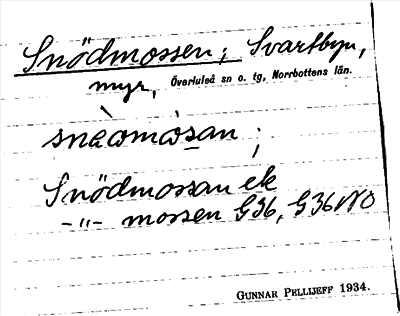 Snödmossen; Svartbyn,
myr, Överluleå sn o. tg, Norrbottens län.
snèomòsan;
Snödmossan ek
-"- mossen G36, G36NO
GUNNAR PELLIJEFF 1934.